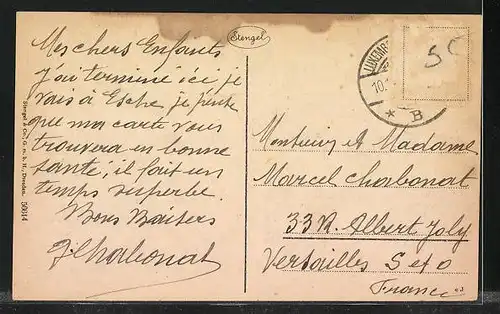 Mes chers Enfants
J'ai terminé ici je
vais à Esche je pense
que ma carte vous
trouvera en bonne
santé, il fait un
temps superbe.
Bons Baisers
JCharbonat
Stengel & Co., G. m. b. H., Dresden. 50014
Stengel
LUXEMB
10.
* B
5C
Monsieur et Madame
Marcel Charbonat
33 R. Albert Joly
Versailles S et O
France